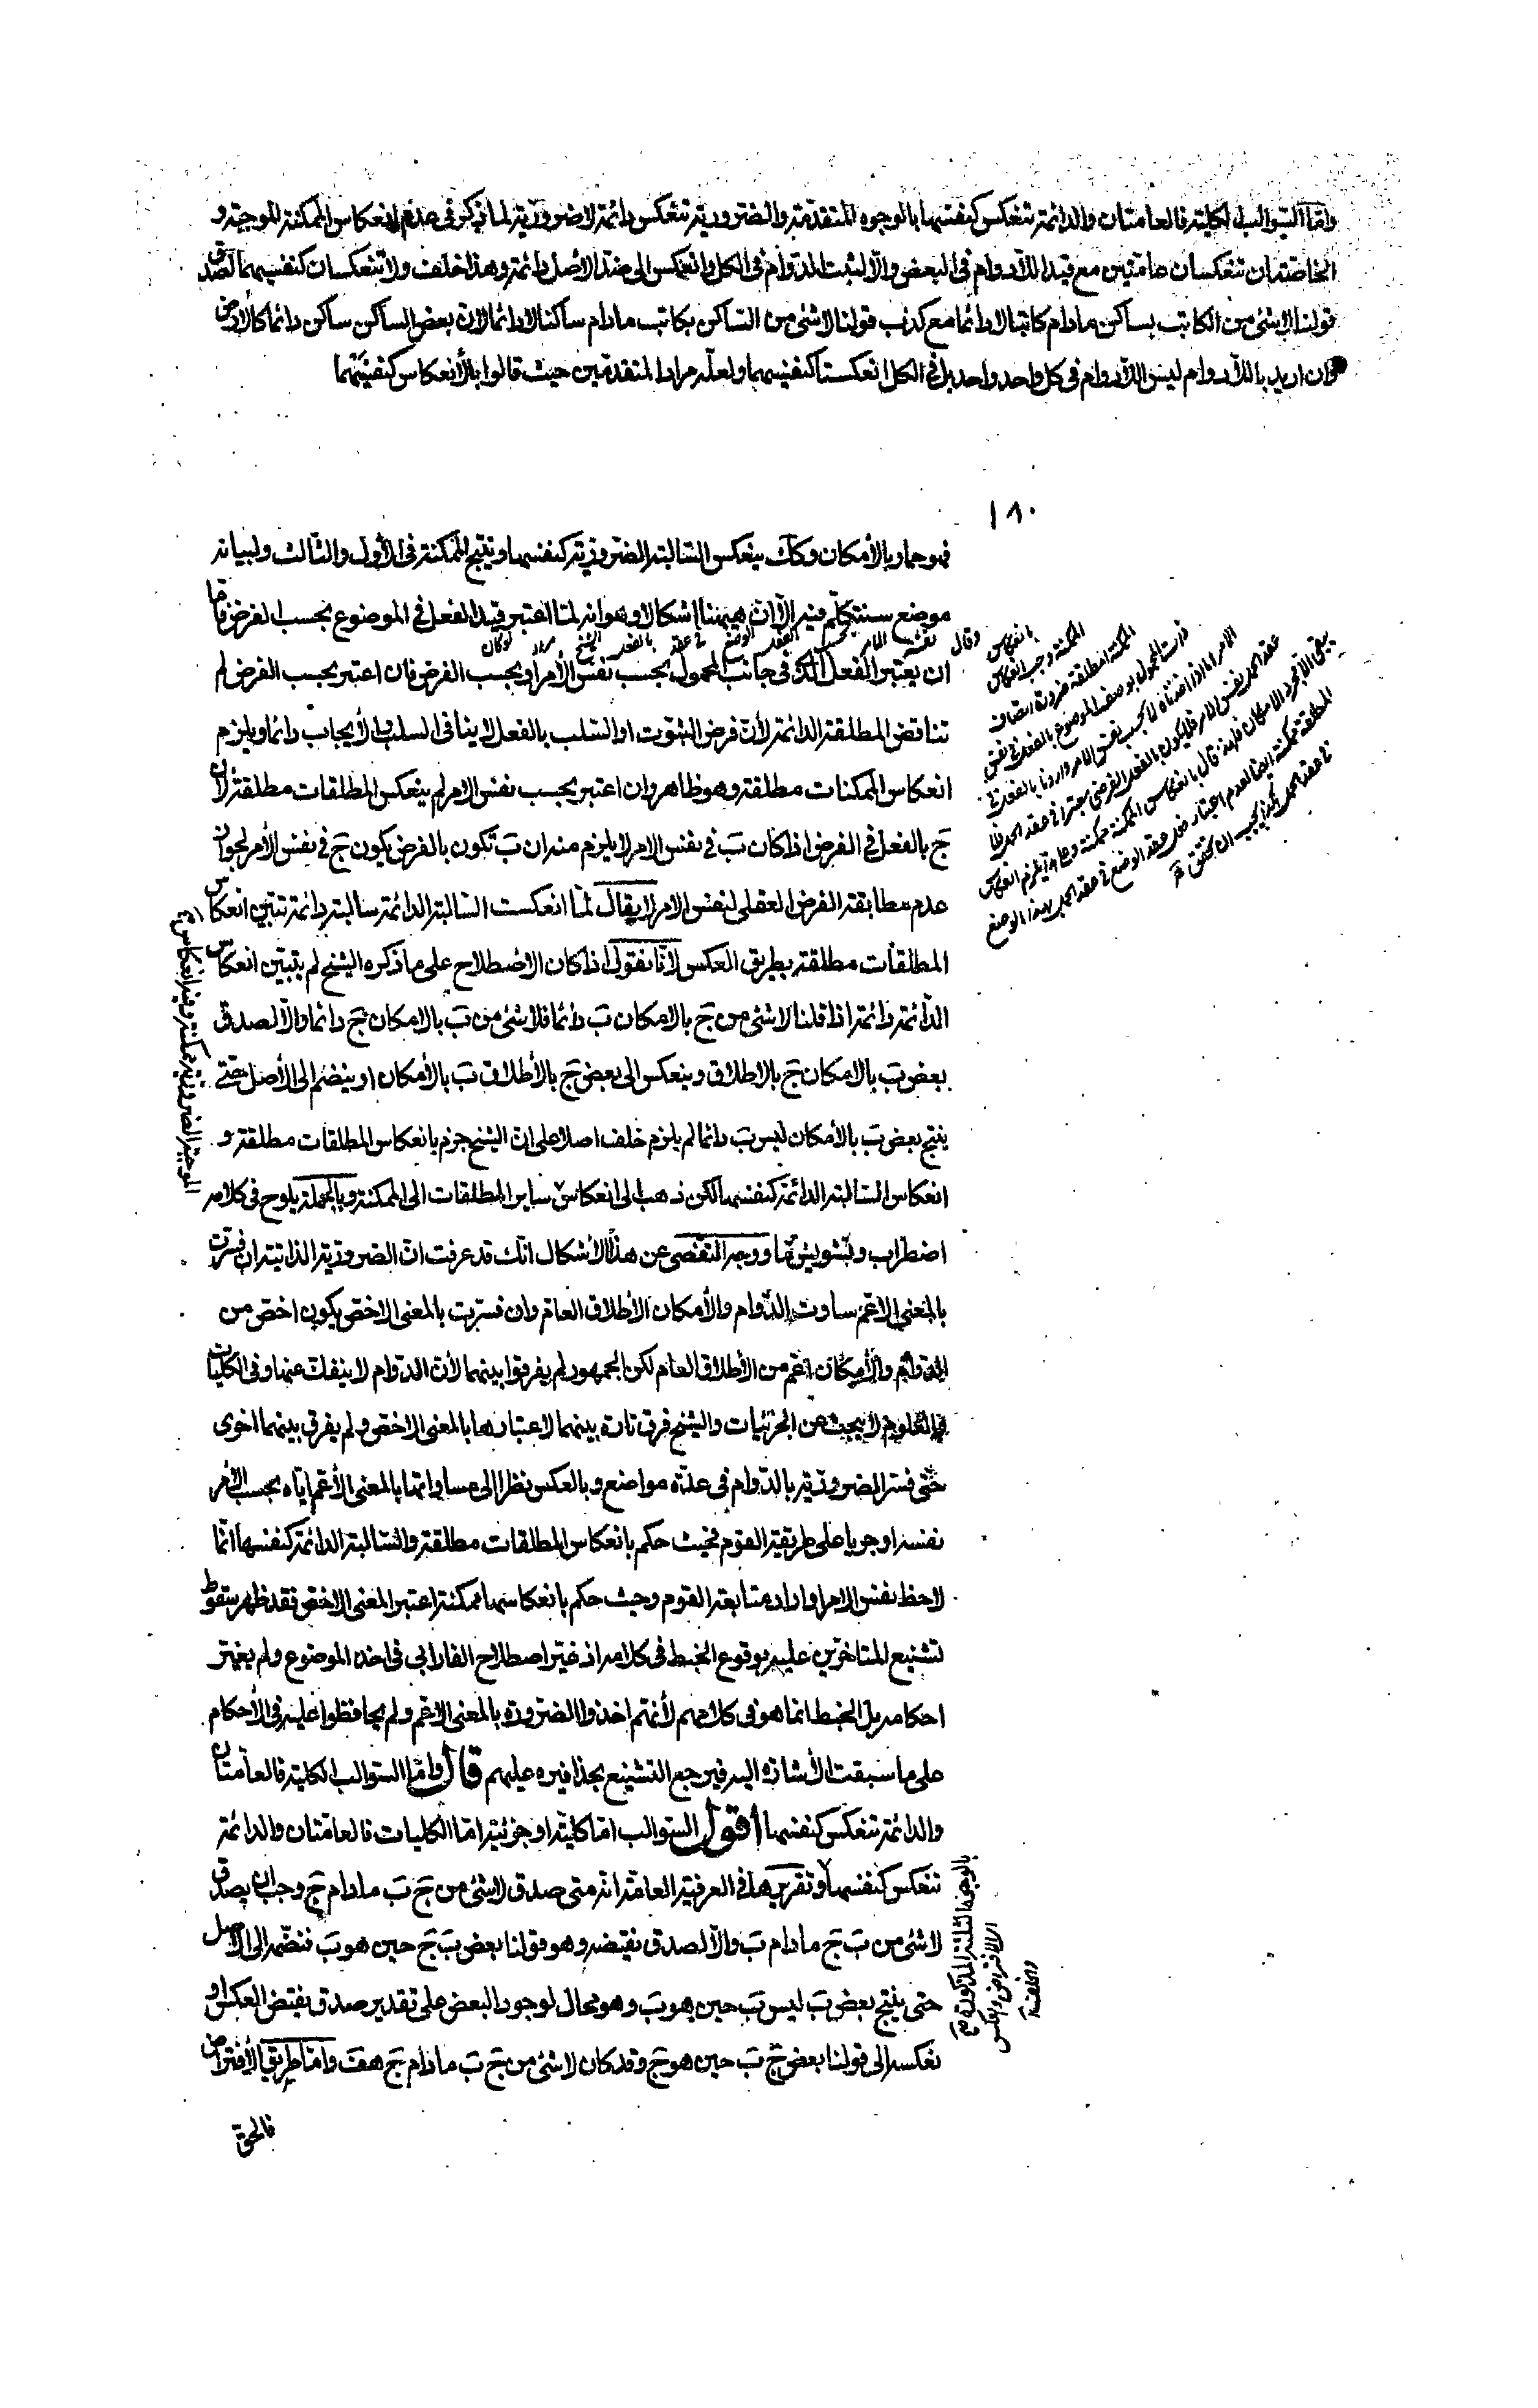 وامّا السّوالب الكلية فالعامتان والدائمة تنعكس كنفسها بالوجوه المتقدمة والضرورية تنعكس دائمة لا ضرورية لما ذكر فى عدم انعكاس الممكنة الموجبة و
الخاصّتان تنعكسان عامتين مع قيد اللّادوام فى البعض والّا لثبت الدّوام فى الكل وانعكس الى ضدّ الأصل دائمة وهذا خلف ولا تنعكسان كنفسيهما لصدق
قولنا لا شئ من الكاتب بساكن مادام كاتبا لا دائما مع كذب قولنا لا شئ من السّاكن بكاتب مادام ساكنا لا دائما لان بعض الساكن ساكن دائما كالارض
وان اريد باللّادوام ليس اللّادوام فى كل واحد واحد بل فى الكل انعكستا كنفسيهما ولعلّه مراد المتقدّمين حيث قالوا بالأنعكاس كنفسيهما
١٨٠
فهو حماد بالأمكان وكك ينعكس السّالبة الضّروريّة كنفسها وتنتج الممكنة فى الأول والثّالث ولبيانه
موضع سنتكلّم فيه الّا انّ هيهنا اشكالا وهو انه لمّا اعتبر قيد الفعل فى الموضوع بحسب الفرض فامّا
ان يعتبر الفعل الّذى فى جانب المحمول بحسب نفس الأمر او بحسب الفرض فان اعتبر بحسب الفرض لم
تناقض المطلقة الدائمة لأنّ فرض الثبوت او السّلب بالفعل لا ينافى السلب او الأيجاب دائما ويلزم
انعكاس الممكنات مطلقة وهو ظاهر وان اعتبر بحسب نفس الامر لم ينعكس المطلقات مطلقة لأن
ج بالفعل فى الفرض اذا كان ب فى نفس الامر لا يلزم منه ان ب تكون بالفرض يكون ج فى نفس الأمر لجواز
عدم مطابقة الفرض العقلى لنفس الامر لا يقال لمّا انعكست السّالبة الدائمة سالبة دائمة تبيّن انعكاس
المطلقات مطلقة بطريق العكس لأنّا نقول اذا كان الاصطلاح على ما ذكره الشيخ لم يتبيّن انعكاس
الدّائمة دائمة اذا قلنا لا شئ من ج بالامكان ب دائما فلا شئ من ب بالامكان ج دائما والّا لصدق
بعض ب بالامكان ج بالاطلاق وينعكس الى بعض ج بالأطلاق ب بالأمكان او ينضم الى الأصل حتّى
ينتج بعض ب بالأمكان ليس ب دائما لم يلزم خلف اصلا على انّ الشيخ جزم بانعكاس المطلقات مطلقة و
انعكاس السّالبة الدائمة كنفسها لكن ذهب الى انعكاس ساير المطلقات الى الممكنة وبالجملة يلوح فى كلامه
اضطراب وتشويش ما ووجه التّفصّى عن هذا الأشكال انّك قد عرفت انّ الضروريّة الذاتيّة ان فسّرت
بالمعنى الاعّم ساوت الدّوام والأمكان الأطلاق العام وان فسّرت بالمعنى الاخصّ يكون اخصّ من
الدّوام والأمكان اعّم من الأطلاق العام لكن الجمهور لم يفرقوا بينهما لأن الدّوام لا ينفك عنها فى الكليّات
والعلوم لا يبحث عن الجزئيات والشيخ فرق تارة بينهما لاعتبارها بالمعنى الاخص ولم يفرق بينهما اخرى
حتّى فسّر الضروريّة بالدّوام فى عدّة مواضع وبالعكس نظرا الى مساواتها بالمعنى الأعّم ايّاه بحسب الأمر
نفسه او جريا على طريقة القوم فحيث حكم بانعكاس المطلقات مطلقة والسّالبة الدائمة كنفسها انّما
لاحظ نفس الامر او اراد متابعة القوم وحيث حكم بانعكاسها ممكنة اعتبر المعنى الاخصّ فقد ظهر سقوط
تشنيع المتاخرّين عليه بوقوع الخبط فى كلامه اذ غيّر اصطلاح الفارابى فى اخذ الموضوع ولم يغيّر
احكامه بل الخبط انما هو فى كلامهم لأنّهم اخذوا الضّرورة بالمعنى الاعّم ولم يحافظوا عليه فى الأحكام
على ما سبقت الأشارة اليه فيرجع التشنيع بحذافيره عليهم قال وامّا السّوالب الكلية فالعامّتان
والدائمة تنعكس كنفسها اقول السّوالب امّا كليّة او جزئيّة امّا الكليات فالعامّتان والدائمة
تنعكس كنفسها وتقريرها فى العرفيّة العامّة انه متى صدق لا شئ من ج ب مادام ج وجب ان يصدق
لا شئ من ب ج مادام ب والّا لصدق نقيضه وهو قولنا بعض ب ج حين هو ب فنضمّه الى الأصل
حتى ينتج بعض ب ليس ب حين هو ب وهو محال لوجود البعض على تقدير صدق نقيض العكس او
نعكسه الى قولنا بعض ج ب حين هو ج وقد كان لا شئ من ج ب مادام ج هف وامّا طريق الأفتراض
فالحق